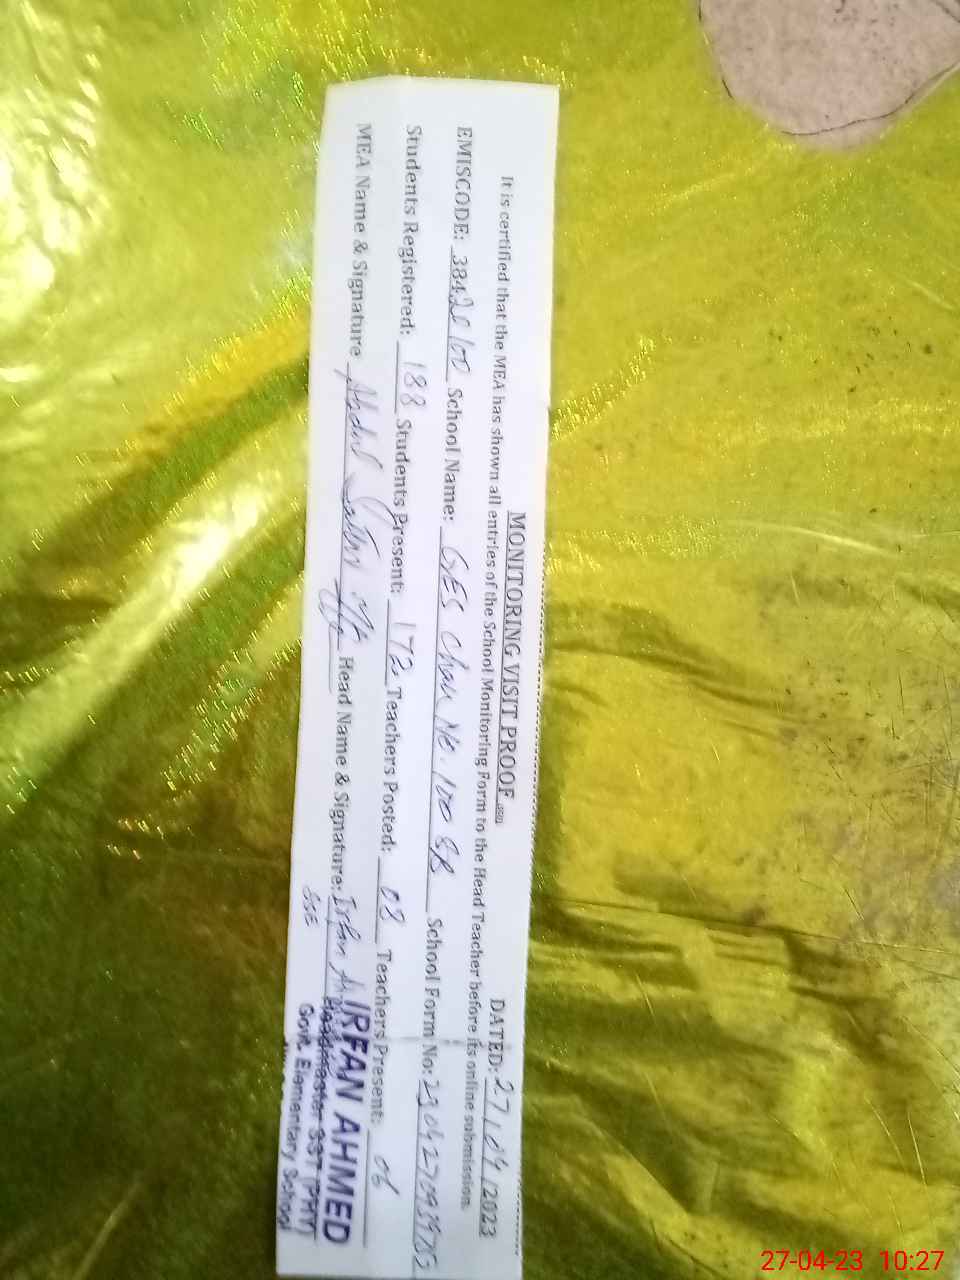 MONITORING VISIT PROOF
DATED: 27/04/2023
It is certified that the MEA has shown all entries of the School Monitoring Form to the Head Teacher before its online submission.
EMISCODE: 38420100 School Name: GES Chak No. 100 SB School Form No:
Students Registered: 188 Students Present: 172 Teachers Posted: 08 Teachers Present: 06
MEA Name & Signature Abdul Head Name & Signature: Irfan
SSE
IRFAN AHMED
Headmaster SST (PHY)
Govt. Elementary School
27-04-23 10:27